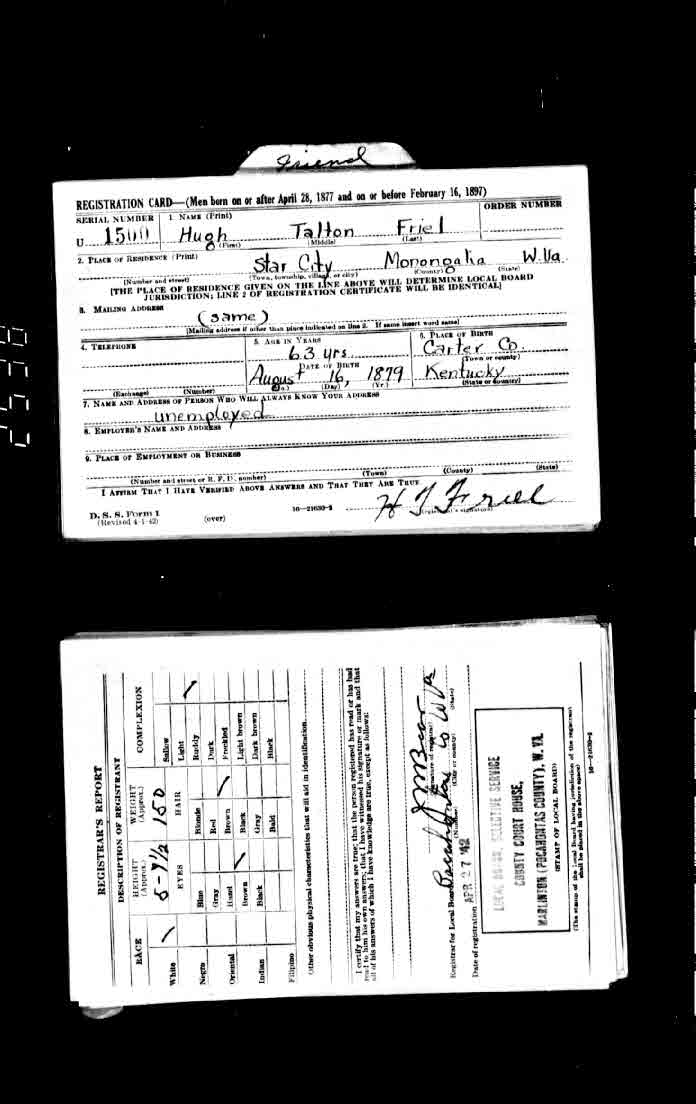 Friend
REGISTRATION CARD—(Men born on or after April 28, 1877 and on or before February 16, 1897)
SERIAL NUMBER 1. NAME (Print) ORDER NUMBER
U 1500 Hugh Talton Friel
(First) (Middle) (Last)
2. PLACE OF RESIDENCE (Print)
Star City Monongalia W.Va.
(Number and street) (Town, township, village, or city) (County) (State)
[THE PLACE OF RESIDENCE GIVEN ON THE LINE ABOVE WILL DETERMINE LOCAL BOARD
JURISDICTION; LINE 2 OF REGISTRATION CERTIFICATE WILL BE IDENTICAL]
3. MAILING ADDRESS
(same)
[Mailing address if other than place indicated on line 2. If same insert word same]
4. TELEPHONE 5. AGE IN YEARS 6. PLACE OF BIRTH
63 yrs. Carter Co.
DATE OF BIRTH (Town or county)
August 16, 1879 Kentucky
(Exchange) (Number) (Mo.) (Day) (Yr.) (State or country)
7. NAME AND ADDRESS OF PERSON WHO WILL ALWAYS KNOW YOUR ADDRESS
unemployed
8. EMPLOYER'S NAME AND ADDRESS
9. PLACE OF EMPLOYMENT OR BUSINESS
(Number and street or R. F. D. number) (Town) (County) (State)
I AFFIRM THAT I HAVE VERIFIED ABOVE ANSWERS AND THAT THEY ARE TRUE.
H T Friel
D. S. S. Form 1 16—21630-2 (Registrant's signature)
(Revised 4-1-42) (over)
REGISTRAR'S REPORT
DESCRIPTION OF REGISTRANT
RACE HEIGHT (Approx.) WEIGHT (Approx.) COMPLEXION
5-7 1/2 150
White EYES HAIR Sallow
Light
Negro Blue Blonde Ruddy
Gray Red Dark
Oriental Hazel Brown Freckled
Brown Black Light brown
Indian Black Gray Dark brown
Filipino Bald Black
Other obvious physical characteristics that will aid in identification
I certify that my answers are true; that the person registered has read or has had
read to him his own answers; that I have witnessed his signature or mark and that
all of his answers of which I have knowledge are true, except as follows:
(Signature of registrar)
Registrar for Local Board Pocahontas Co W Va
(Number) (City or county) (State)
Date of registration APR 27 '42
SELECTIVE SERVICE
COUNTY COURT HOUSE,
MARLINTON (POCAHONTAS COUNTY), W. VA.
(STAMP OF LOCAL BOARD)
(The stamp of the Local Board having jurisdiction of the registrant
shall be placed in the above space)
16—21630-2